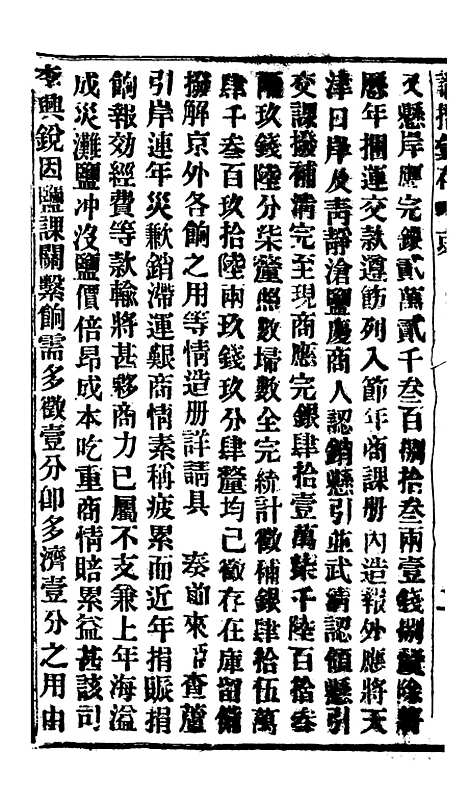 又懸岸應完銀貳萬貳千叁百捌拾叁兩壹錢捌釐除將
歷年捆運交款遵飭列入節年商課册內造報外應將天
津口岸及青靜滄鹽慶商人認銷懸引並武清認領懸引
交課撥補清完至現商應完銀肆拾壹萬柒千陸百拾叁
兩玖錢陸分柒釐照數埽數全完統計徵補銀肆拾伍萬
肆千叁百玖拾陸兩玖錢玖分肆釐均已徵存在庫留備
撥解京外各餉之用等情造册詳請具　奏前來臣查蘆
引岸連年災歉銷滯運艱商情素稱疲累而近年捐賑捐
餉報效經費等款輸將甚夥商力已屬不支兼上年海溢
成災灘鹽冲沒鹽價倍昂成本吃重商情賠累益甚該司
李興銳因鹽課關繫餉需多徵壹分卽多濟壹分之用由